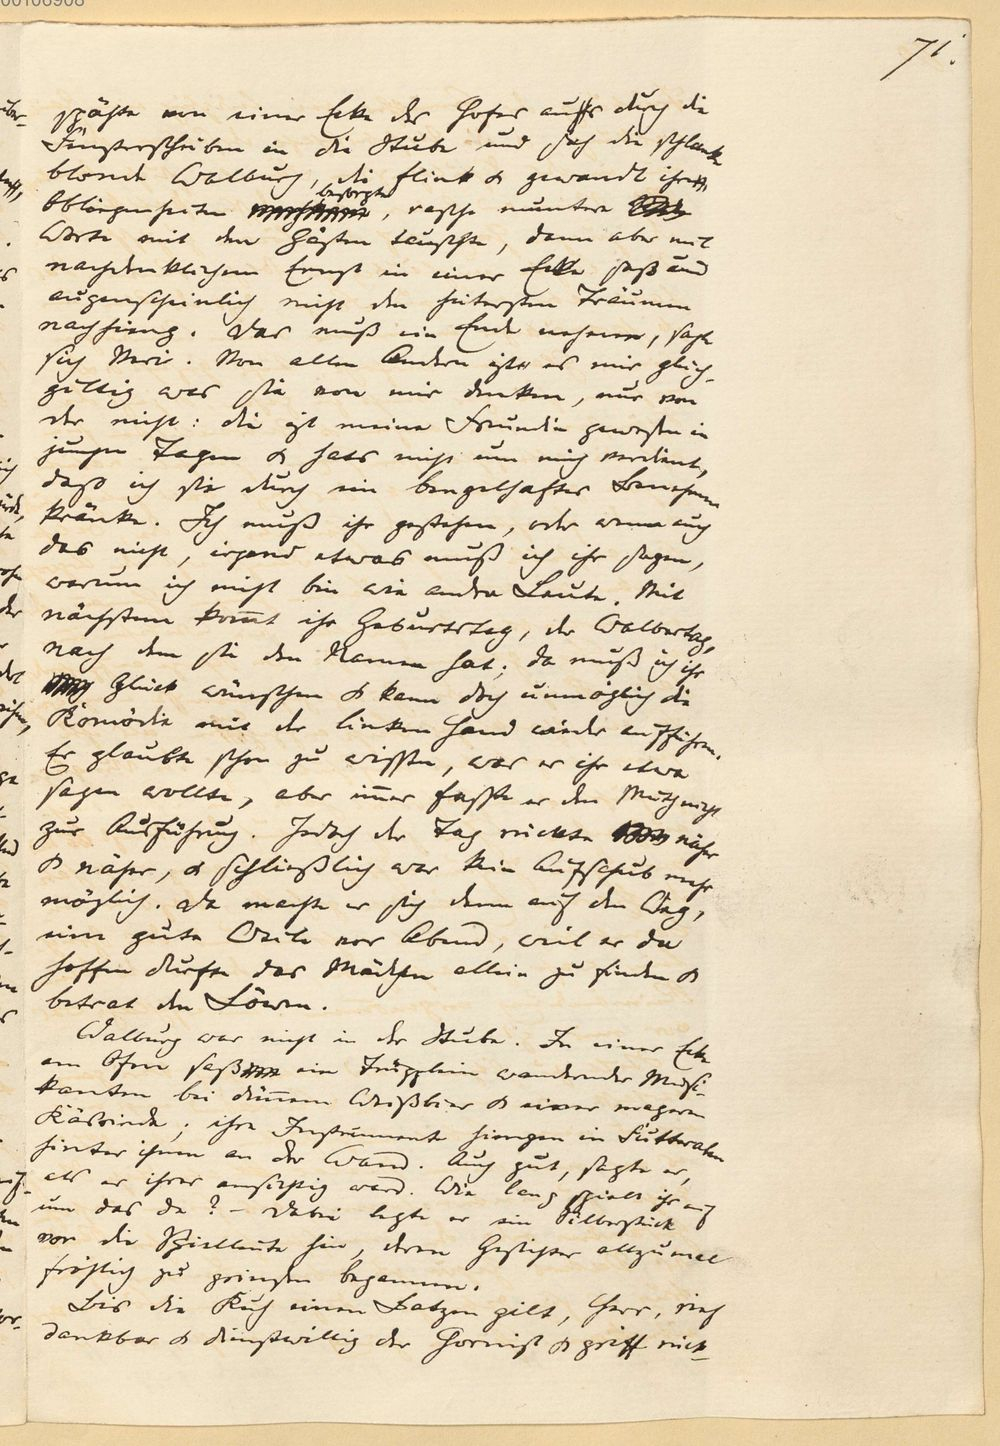 71.
spähte von einer Ecke des Hofes aus durch die
Fensterscheiben in die Stube und sah die schlanke
blonde Walburg, die flink & gewandt ihren
Obliegenheiten besorgte, rasche muntere
Worte mit den Gästen tauschte, dann aber mit
nachdenklichem Ernst in einer Ecke saß und
augenscheinlich nicht den heitersten Träumen
nachhieng. Das muß ein Ende nehmen, sagte
sich Veri. Von allen Andern ists es mir gleich-
gültig was sie von mir denken, nur von
der nicht: die ist meine Freundin gewesen in
jungen Tagen & hats nicht um mich verdient,
daß ich sie durch ein bengelhaftes Benehmen
kränke. Ich muß ihr gestehen, oder wenn auch
das nicht, irgend etwas muß ich ihr sagen,
warum ich nicht bin wie andre Leute. Mit
nächstem kommt ihr Geburtstag, der Walbertag,
nach dem sie den Namen hat; da muß ich ihr
Glück wünschen & kann doch unmöglich die
Komödie mit der linken Hand wieder aufführen.
Er glaubte schon zu wissen, was er ihr etwa
sagen wollte, aber immer fasste er den Muth nicht
zur Ausführung. Jedoch der Tag rückte näher
& näher, & schließlich war kein Aufschub mehr
möglich. Da machte er sich denn auf den Weg,
eine gute Weile vor Abend, weil er da
hoffen durfte das Mädchen allein zu finden &
betrat den Löwen.
Walburg war nicht in der Stube. In einer Ecke
am Ofen saß ein Trüpplein wandernder Musi-
kanten bei dünnem Weißbier & einer magern
Käsrinde; ihre Instrumente hiengen in Futteralen
hinter ihnen an der Wand. Auch gut, sagte er,
als er ihrer ansichtig ward. Wie lang spielt ihr auf
um das da? – Dabei legte er ein Silberstück
vor die Spielleute hin, deren Gesichter allzumal
fröhlich zu grinsen begannen.
Bis die Kuh einen Batzen gilt, Herr, rief
dankbar & dienstwillig der Hornist & griff rück-